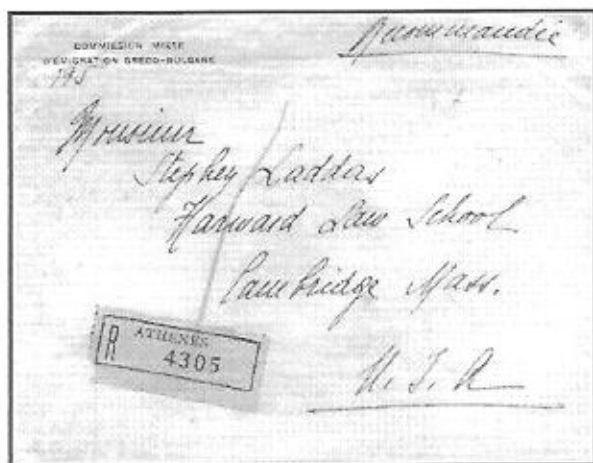 COMMISSION MIXTE
D'ÉMIGRATION GRÉCO-BULGARE
Recommandée
Monsieur
Stephen Laddas
Harward Law School
Cambridge Mass.
R ATHENES
4305
U. S. A